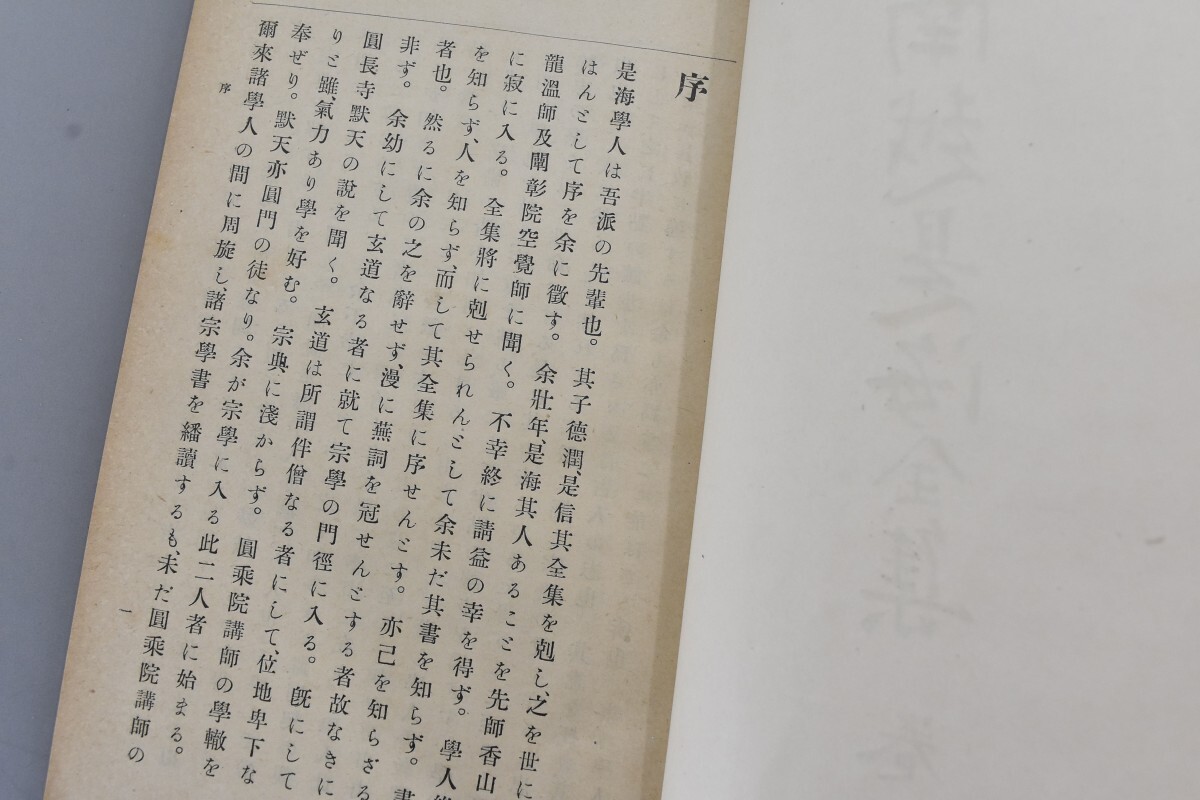 序
是海學人は吾派の先輩也。其子德潤、是信其全集を剋し、之を世に
はんとして序を余に徵す。余壯年、是海其人あることを先師香山
龍溫師及闡彰院空覺師に聞く。不幸終に請益の幸を得ず。學人
に寂に入る。全集將に剋せられんとして余未だ其書を知らず。書
を知らず、人を知らず、而して其全集に序せんとす。亦己を知らざる
者也。然るに余の之を辭せず、漫に蕪詞を冠せんとする者故なきに
非ず。余幼にして玄道なる者に就て宗學の門徑に入る。既にして
圓長寺默天の說を聞く。玄道は所謂伴僧なる者にして、位地卑下な
りと雖、氣力あり學を好む。宗典に淺からず。圓乘院講師の學轍を
奉ぜり。默天亦圓門の徒なり。余が宗學に入る此二人者に始まる。
爾來諸學人の間に周旋し、諸宗學書を繙讀するも、未だ圓乘院講師の
序
一